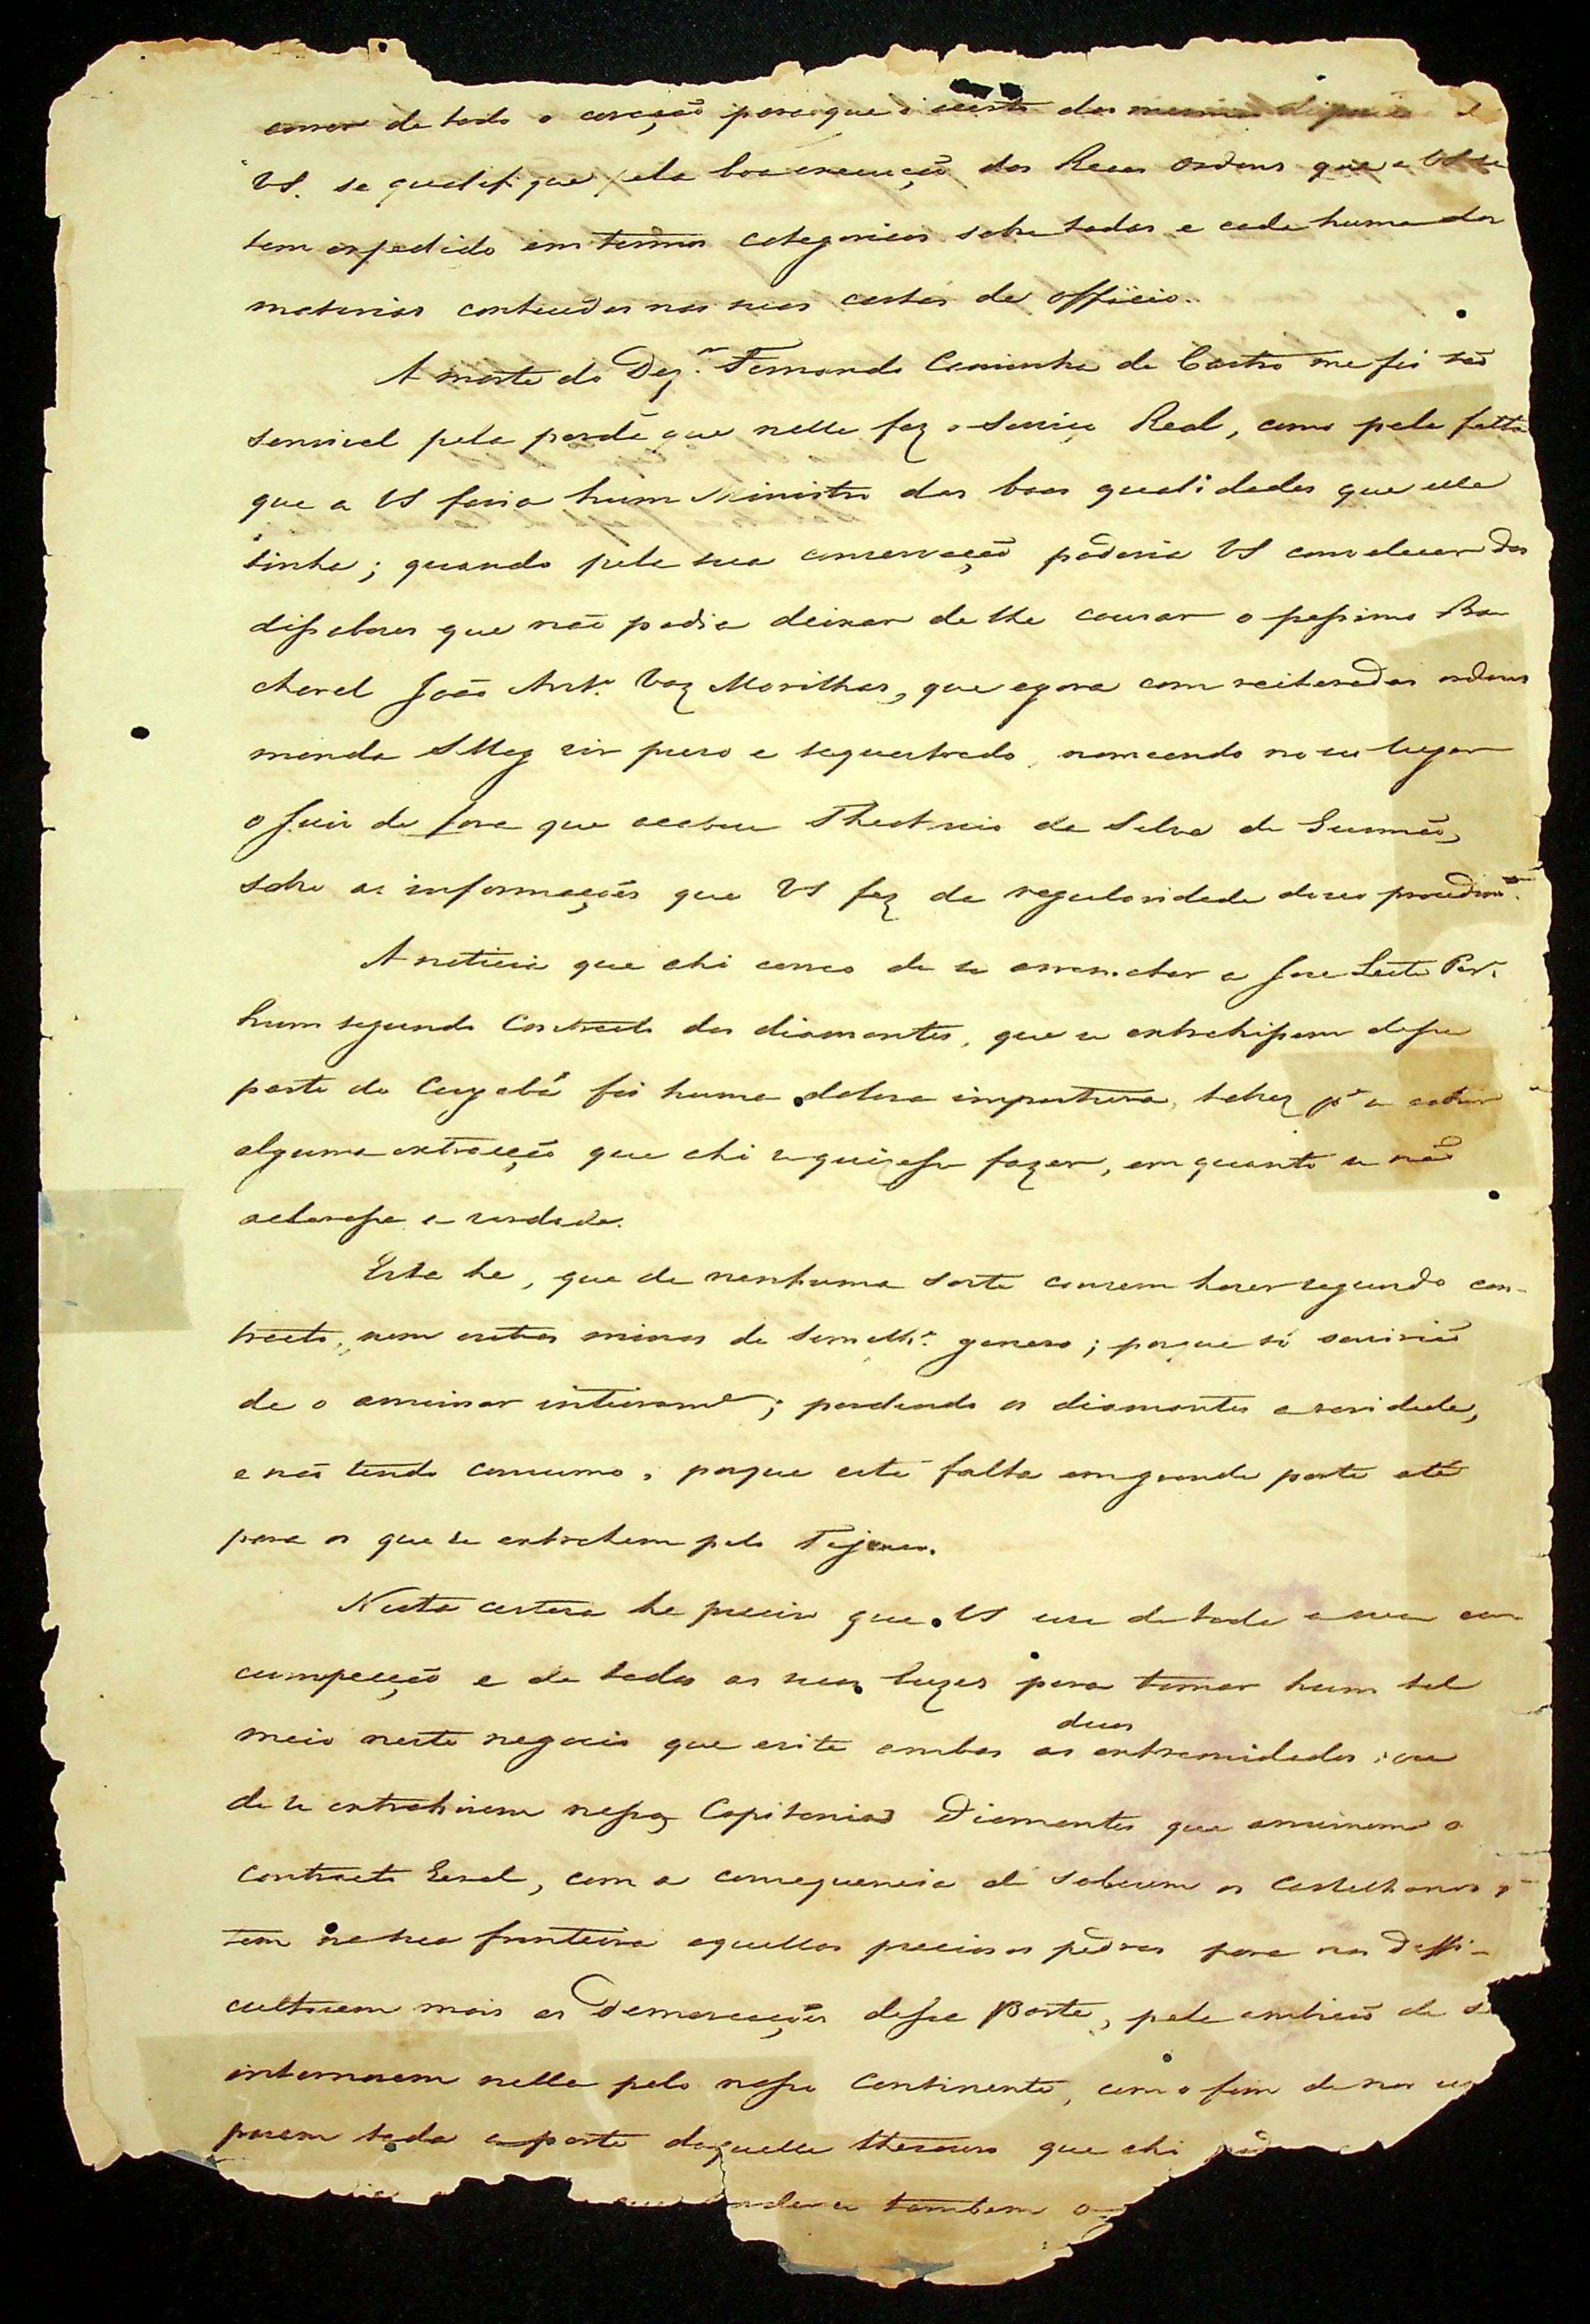 correr de todo o coração para que o acerto das mesmas
VS. se qualifique pela boa execução das Reaes Ordens que a VS se
tem expedido em termos categoricos sobre todas e cada huma das
materias conteudas nas suas cartas de officio.
A morte do Dez.or Fernando Caminha de Castro me foi tão
sensivel pela perda que nelle fez o Serviço Real, como pela falta
que a VS faria hum Ministro das boas qualidades que elle
tinha; quando pela sua conservação poderia VS convalecer dos
dissabores que não podia deixar de lhe causar o pessimo Ba
charel João Ant.o Vaz Morilhas, que agora com reiteradas ordens
manda SMag vir prezo e sequestrado, nomeando no seu lugar
o Juiz de fora que acabou Theotonio da Silva de Gusmão,
sobre as informações que VS fez da regularidade do seu procedim.to
A noticia que ahi correo de se arrematar a Jose Leite Per.a
hum segundo Contracto dos diamantes, que se extrahissem dessa
parte do Cuyabá foi huma doloza impostura, talvez p.a se cobrir
alguma extracção que ahi se quizesse fazer, em quanto se não
aclarasse a verdade.
Esta he, que de nenhuma sorte convem haver segundo con-
tracto, nem outras minas de semelh.e genero; porque só servirião
de o arruinar inteiram.e; perdendo os diamantes a raridade,
e não tendo consumo, porque este falta em grande parte até
para os que se extrahem pelo Tejuco.
Nesta certeza he precizo que VS use de toda a sua cir
cumpecção e de todas as suas luzes para tomar hum tal
meio neste negocio que evite ambas as duas extremidades: ou
de se extrahirem nessas Capitanias Diamantes que arruinem o
contracto Geral, com a consequencia de saberem os Castelhanos q
tem na sua fronteira aquellas preciosas pedras para nos diffi-
cultarem mais as Demarcações dessa Parte, pela ambição de se
internarem nella pelo nosso Continente, com o fim de nos
parem toda a parte daquelle thesouro que ahi
tambem